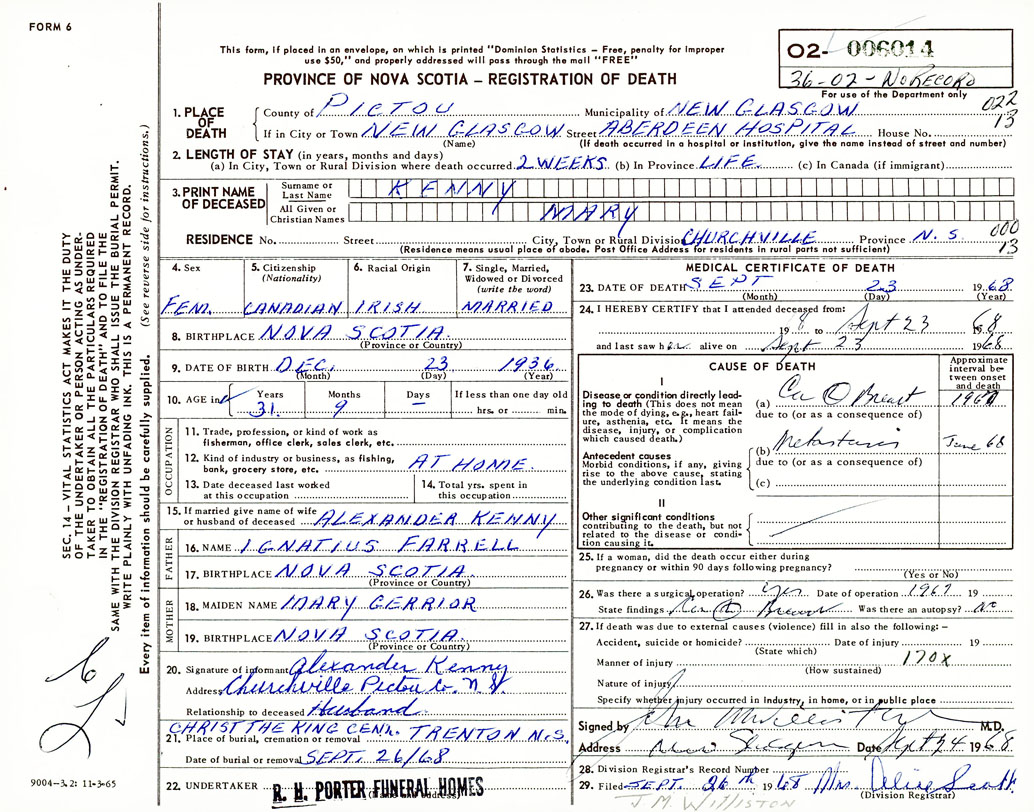 FORM 6
This form, if placed in an envelope, on which is printed "Dominion Statistics – Free, penalty for improper
use $50," and properly addressed will pass through the mail "FREE"
PROVINCE OF NOVA SCOTIA – REGISTRATION OF DEATH
02- 006014
36-02-NO RECORD
For use of the Department only
022
13
1. PLACE OF DEATH
County of PICTOU Municipality of NEW GLASGOW
If in City or Town NEW GLASGOW Street ABERDEEN HOSPITAL House No.
(Name) (If death occurred in a hospital or institution, give the name instead of street and number)
2. LENGTH OF STAY (in years, months and days)
(a) In City, Town or Rural Division where death occurred 2 WEEKS (b) In Province LIFE (c) In Canada (if immigrant)
3. PRINT NAME OF DECEASED
Surname or Last Name KENNY
All Given or Christian Names MARY
RESIDENCE No. Street City, Town or Rural Division CHURCHVILLE Province N.S.
000
13
(Residence means usual place of abode. Post Office Address for residents in rural parts not sufficient)
4. Sex
FEM.
5. Citizenship (Nationality)
CANADIAN
6. Racial Origin
IRISH
7. Single, Married, Widowed or Divorced (write the word)
MARRIED
8. BIRTHPLACE NOVA SCOTIA
(Province or Country)
9. DATE OF BIRTH DEC. 23 1936
(Month) (Day) (Year)
10. AGE in Years Months Days If less than one day old
31. 9 – hrs. or min.
OCCUPATION
11. Trade, profession, or kind of work as
fisherman, office clerk, sales clerk, etc.
12. Kind of industry or business, as fishing,
bank, grocery store, etc. AT HOME.
13. Date deceased last worked
at this occupation
14. Total yrs. spent in
this occupation
15. If married give name of wife
or husband of deceased ALEXANDER KENNY
FATHER
16. NAME IGNATIUS FARRELL
17. BIRTHPLACE NOVA SCOTIA
(Province or Country)
MOTHER
18. MAIDEN NAME MARY GERRIOR
19. BIRTHPLACE NOVA SCOTIA.
(Province or Country)
20. Signature of informant Alexander Kenny
Address Churchville Pictou Co. N.S.
Relationship to deceased Husband
CHRIST THE KING CEM. TRENTON N.S.
21. Place of burial, cremation or removal
Date of burial or removal SEPT. 26/68
22. UNDERTAKER R. H. PORTER FUNERAL HOMES
MEDICAL CERTIFICATE OF DEATH
23. DATE OF DEATH SEPT 23 1968
(Month) (Day) (Year)
24. I HEREBY CERTIFY that I attended deceased from:
19 to Sept 23 1968
and last saw her alive on Sept 23 1968
CAUSE OF DEATH
Approximate interval between onset and death
I
Disease or condition directly leading to death (This does not mean
the mode of dying, e.g., heart failure, asthenia, etc. It means the
disease, injury, or complication
which caused death.)
(a) Ca Breast 1967
due to (or as a consequence of)
Antecedent causes
Morbid conditions, if any, giving
rise to the above cause, stating
the underlying condition last.
(b) Metastasis June 68
due to (or as a consequence of)
(c)
II
Other significant conditions
contributing to the death, but not
related to the disease or condition causing it.
25. If a woman, did the death occur either during
pregnancy or within 90 days following pregnancy?
(Yes or No)
26. Was there a surgical operation? yes Date of operation 1967 19
State findings Ca Breast Was there an autopsy? No
27. If death was due to external causes (violence) fill in also the following:–
Accident, suicide or homicide? Date of injury 19
(State which)
Manner of injury 170X
(How sustained)
Nature of injury
Specify whether injury occurred in industry, in home, or in public place
Signed by M.D.
Address New Glasgow Date Sept 24 1968
28. Division Registrar's Record Number
29. Filed SEPT. 26th 1968 Mrs. Olive Scott
(Division Registrar)
J. M. WILLISTON
SEC. 14 – VITAL STATISTICS ACT MAKES IT THE DUTY
OF THE UNDERTAKER OR PERSON ACTING AS UNDERTAKER TO OBTAIN ALL THE PARTICULARS REQUIRED
IN THE "REGISTRATION OF DEATH" AND TO FILE THE
SAME WITH THE DIVISION REGISTRAR WHO SHALL ISSUE THE BURIAL PERMIT.
WRITE PLAINLY WITH UNFADING INK. THIS IS A PERMANENT RECORD.
Every item of information should be carefully supplied. (See reverse side for instructions.)
9004-3.2: 11-3-65